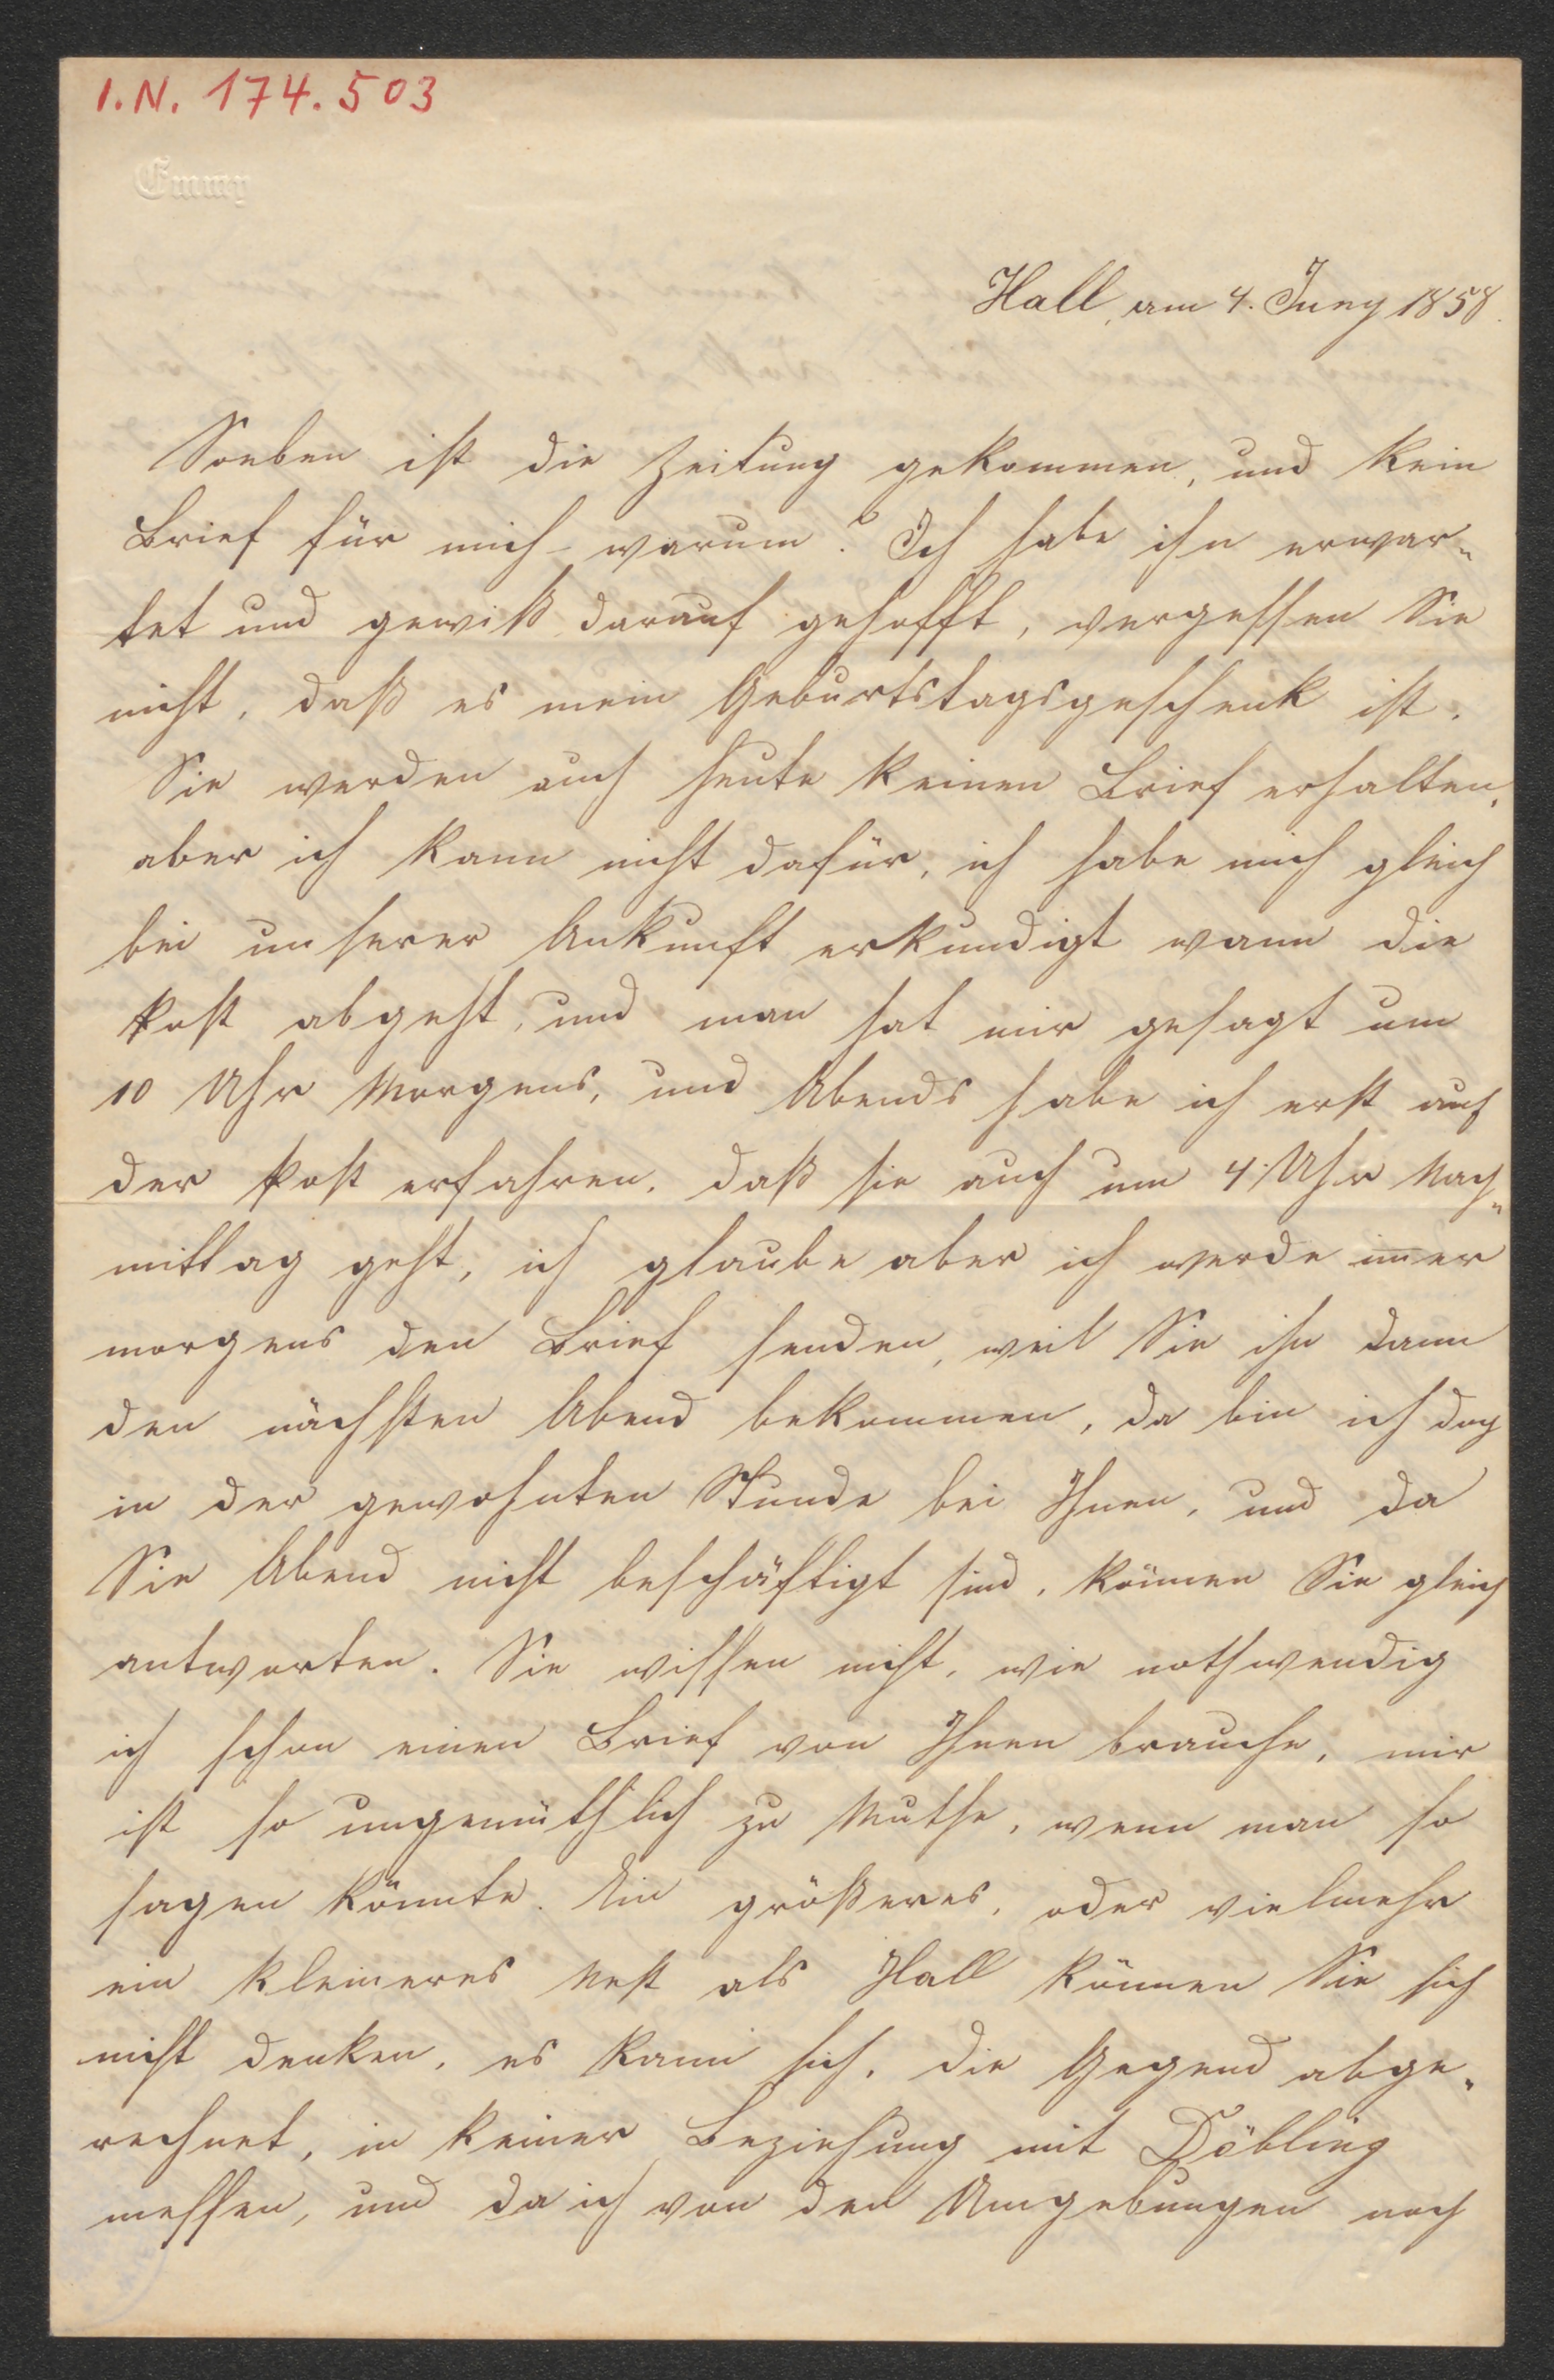 I.N. 174.503
Emmy
Hall, am 4. Juny 1858.
Soeben ist die Zeitung gekommen, und kein
Brief für mich – warum? Ich habe ihn erwar„
tet und gewiß darauf gehofft, vergessen Sie
nicht, daß es mein Geburtstagsgeschenk ist.
Sie werden auch heute keinen Brief erhalten,
aber ich kann nicht dafür, ich habe mich gleich
bei unserer Ankunft erkundigt wann die
Post abgeht, und man hat mir gesagt um
10 Uhr Morgens, und Abends habe ich erst auf
der Post erfahren, daß sie auch um 4 Uhr Nach„
mittag geht, ich glaube aber ich werde im̅er
morgens den Brief senden, weil Sie ihn dann
den nächsten Abend bekommen, da bin ich doch
in der gewohnten Stunde bei Ihnen, und da
Sie Abend nicht beschäftigt sind, können Sie gleich
antworten. Sie wissen nicht, wie nothwendig
ich schon einen Brief von Ihnen brauche, mir
ist so ungemüthlich zu Muthe, wenn man so
sagen könnte. Ein größeres, oder vielmehr
ein kleineres Nest als Hall können Sie sich
nicht denken, es kann sich, die Gegend abge„
rechnet, in keiner Beziehung mit Döbling
messen, und da ich von den Umgebungen noch